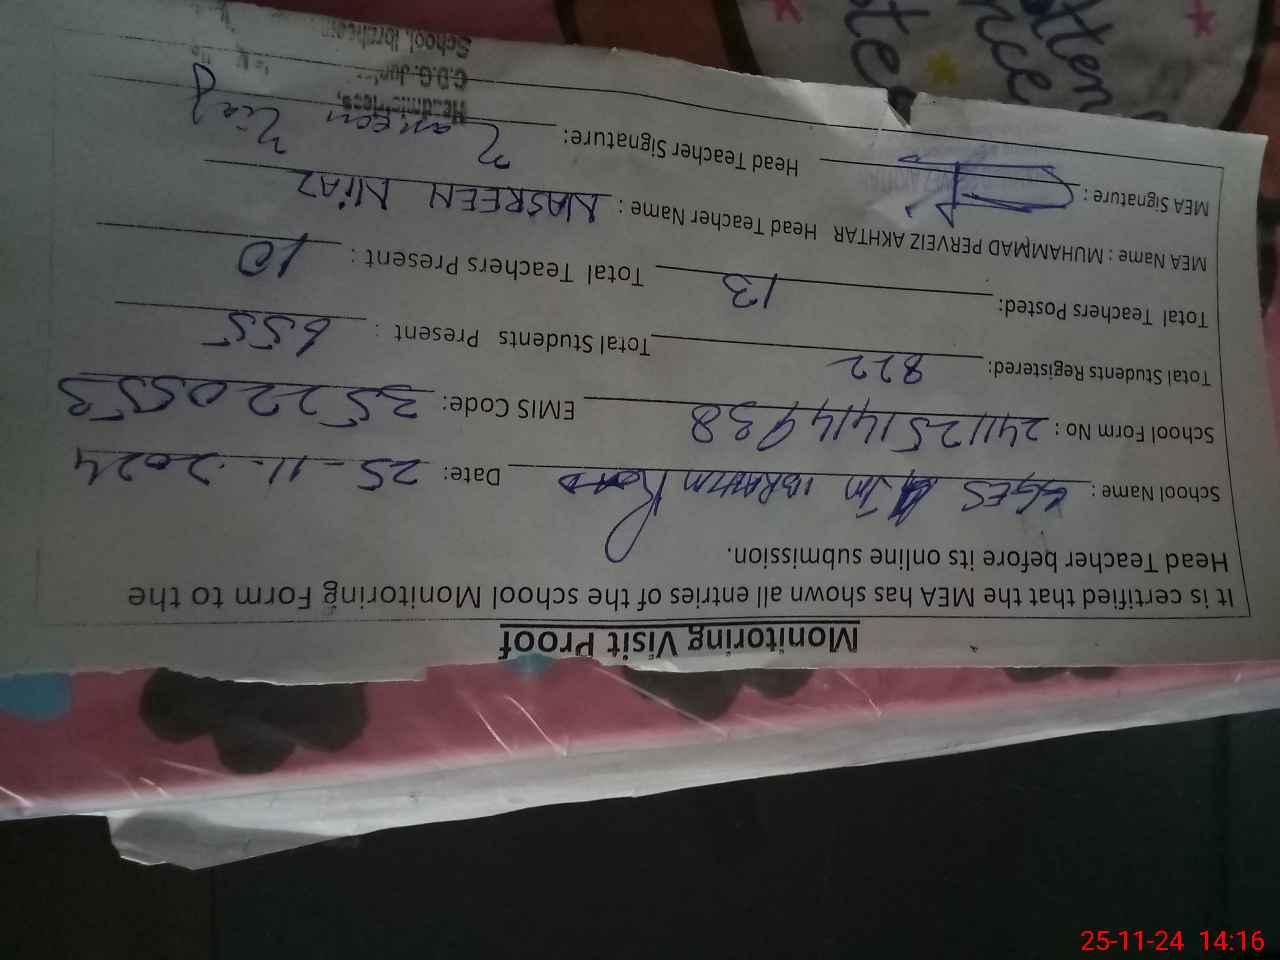 Monitoring Visit Proof
It is certified that the MEA has shown all entries of the school Monitoring Form to the
Head Teacher before its online submission.
School Name : IBRAHIM Road Date: 25-11-2024
School Form No : 2411251414938 EMIS Code: 35220553
Total Students Registered: 822 Total Students Present : 655
Total Teachers Posted: 13 Total Teachers Present : 10
MEA Name : MUHAMMAD PERVEIZ AKHTAR Head Teacher Name : NASREEN NIAZ
MEA Signature : Head Teacher Signature: Nasreen Niaz
Headmistress,
C.D.G. Juni
School, Ibraheem
25-11-24 14:16